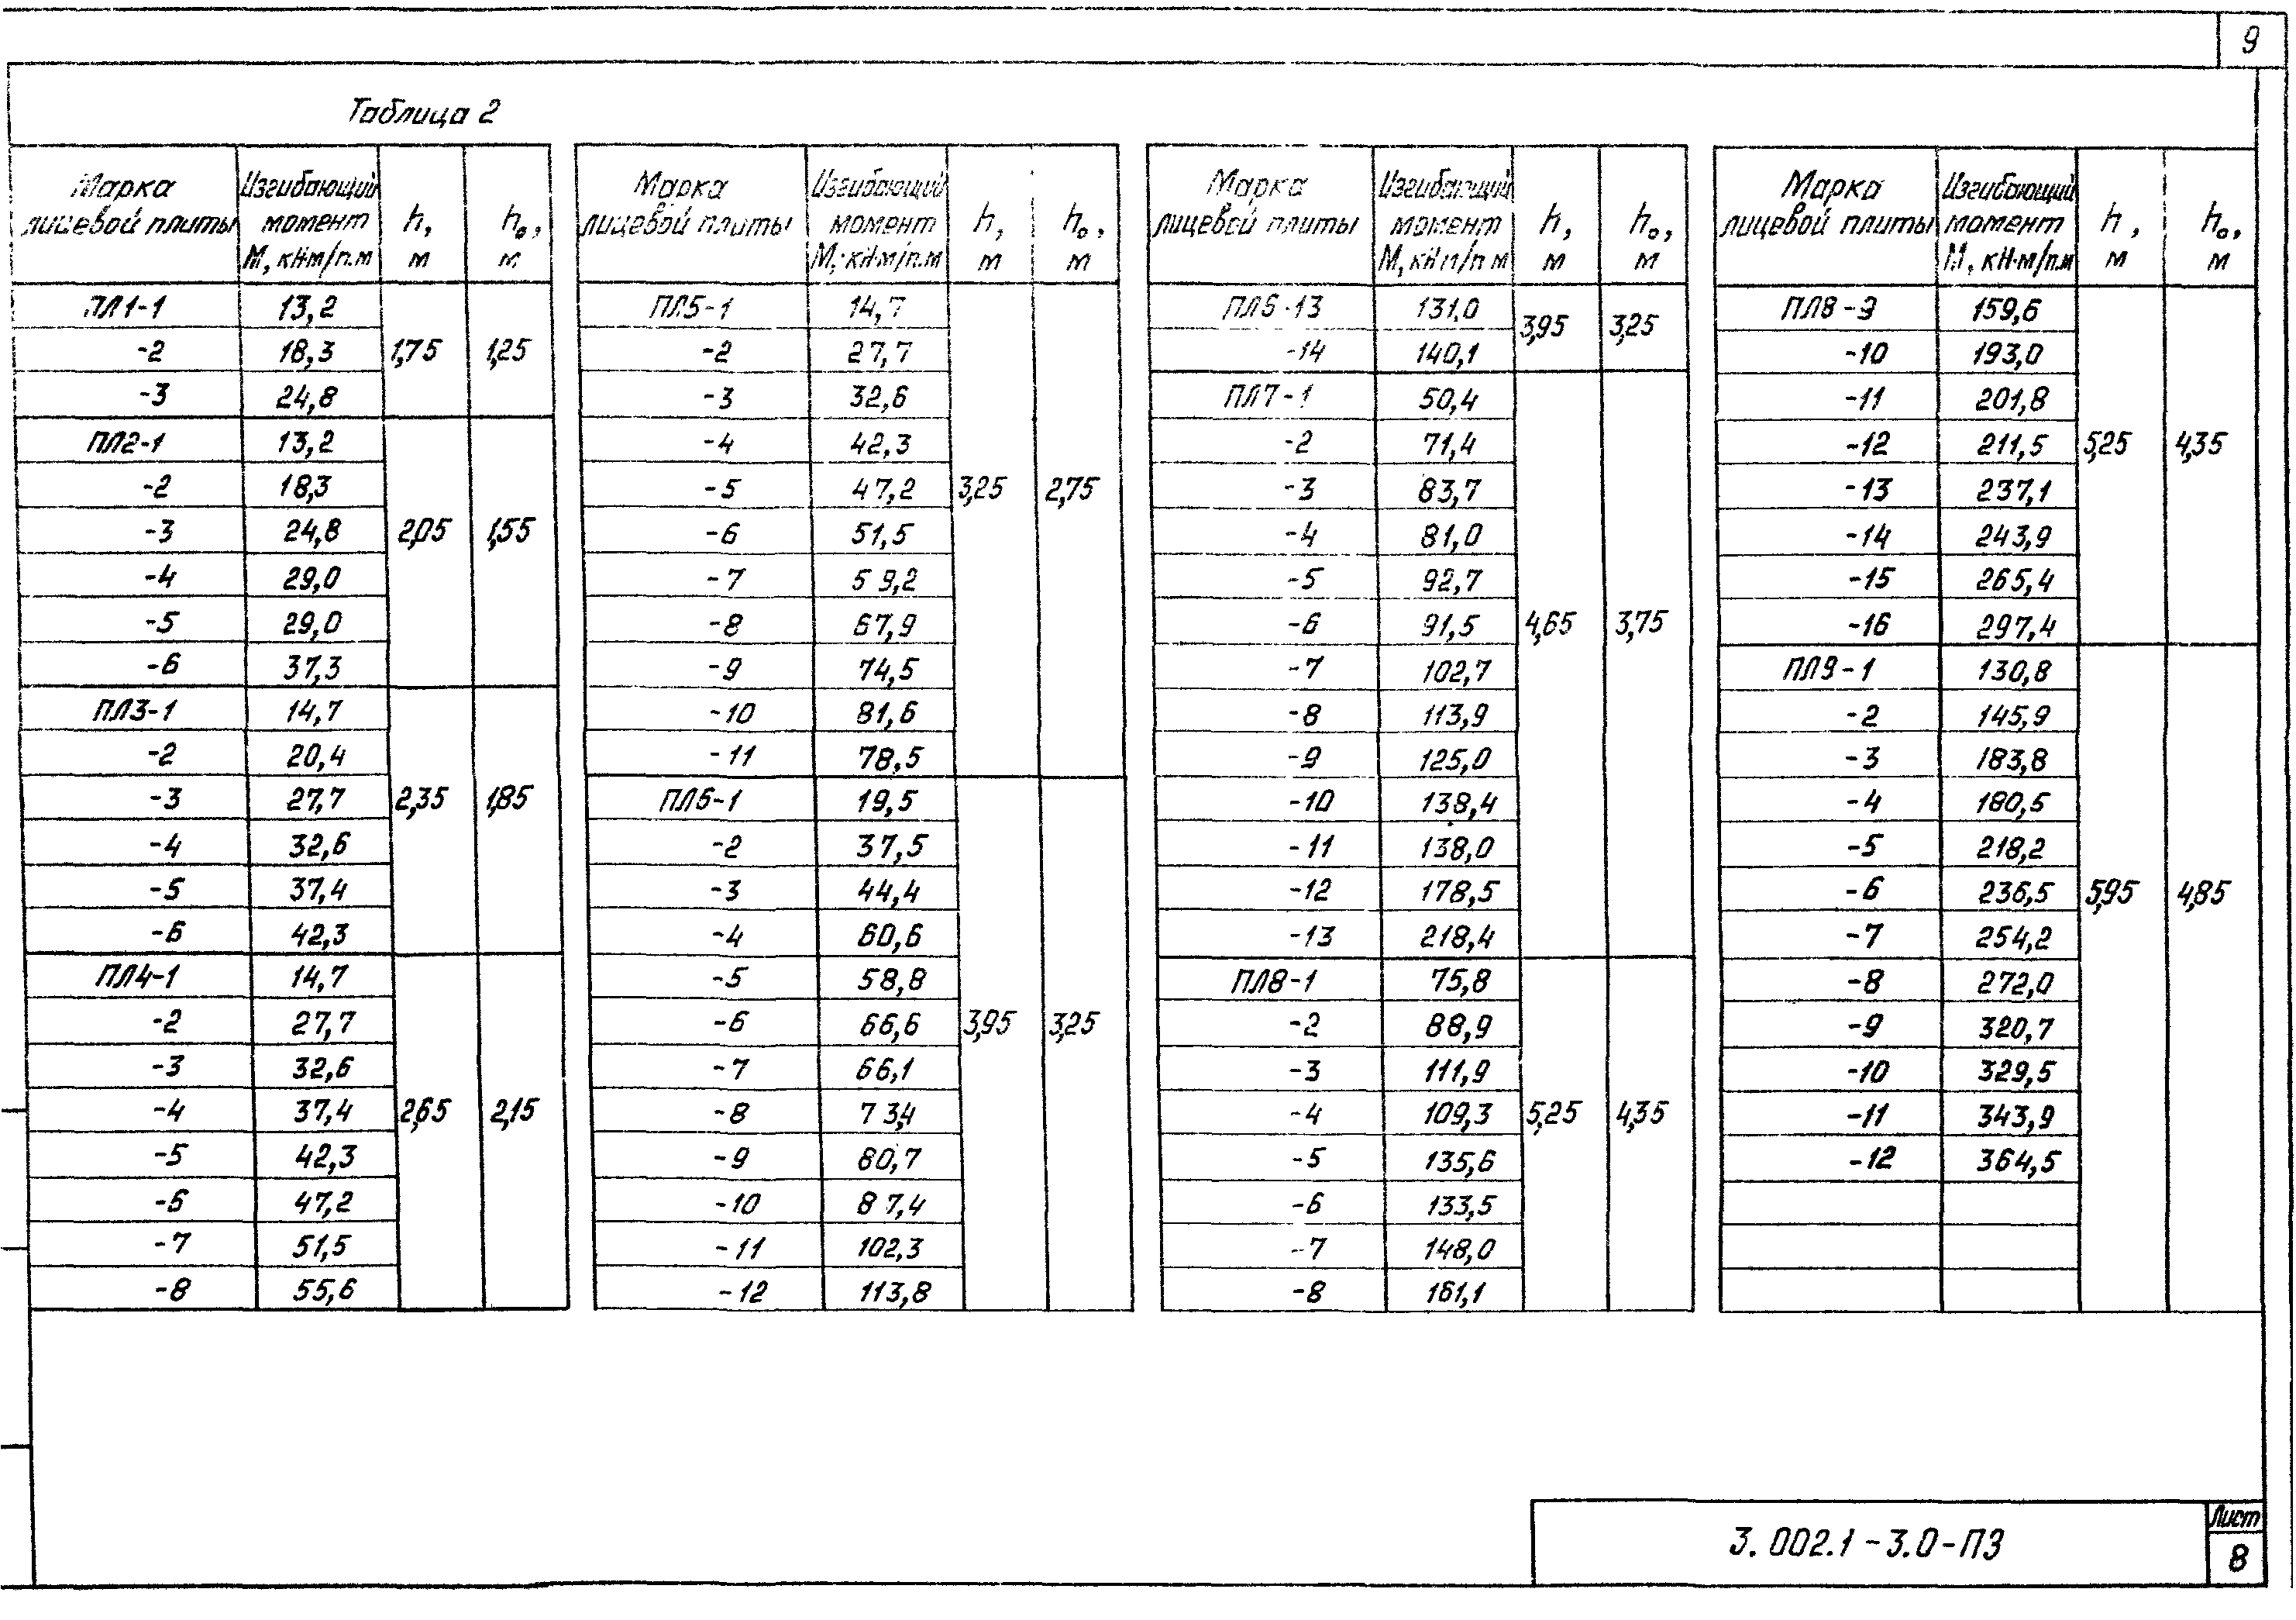 9
Таблица 2
Марка лицевой плиты | Изгибающий момент М, кН·м/п.м | h, м | h₀, м
ПЛ1-1 | 13,2 | 1,75 | 1,25
-2 | 18,3
-3 | 24,8
ПЛ2-1 | 13,2 | 2,05 | 1,55
-2 | 18,3
-3 | 24,8
-4 | 29,0
-5 | 29,0
-6 | 37,3
ПЛ3-1 | 14,7 | 2,35 | 1,85
-2 | 20,4
-3 | 27,7
-4 | 32,6
-5 | 37,4
-6 | 42,3
ПЛ4-1 | 14,7 | 2,65 | 2,15
-2 | 27,7
-3 | 32,6
-4 | 37,4
-5 | 42,3
-6 | 47,2
-7 | 51,5
-8 | 55,6
Марка лицевой плиты | Изгибающий момент М, кН·м/п.м | h, м | h₀, м
ПЛ5-1 | 14,7 | 3,25 | 2,75
-2 | 27,7
-3 | 32,6
-4 | 42,3
-5 | 47,2
-6 | 51,5
-7 | 59,2
-8 | 67,9
-9 | 74,5
-10 | 81,6
-11 | 78,5
ПЛ6-1 | 19,5 | 3,95 | 3,25
-2 | 37,5
-3 | 44,4
-4 | 60,6
-5 | 58,8
-6 | 66,6
-7 | 66,1
-8 | 73,4
-9 | 80,7
-10 | 87,4
-11 | 102,3
-12 | 113,8
Марка лицевой плиты | Изгибающий момент М, кН м/п м | h, м | h₀, м
ПЛ6-13 | 131,0 | 3,95 | 3,25
-14 | 140,1
ПЛ7-1 | 50,4 | 4,65 | 3,75
-2 | 71,4
-3 | 83,7
-4 | 81,0
-5 | 92,7
-6 | 91,5
-7 | 102,7
-8 | 113,9
-9 | 125,0
-10 | 138,4
-11 | 138,0
-12 | 178,5
-13 | 218,4
ПЛ8-1 | 75,8 | 5,25 | 4,35
-2 | 88,9
-3 | 111,9
-4 | 109,3
-5 | 135,6
-6 | 133,5
-7 | 148,0
-8 | 161,1
Марка лицевой плиты | Изгибающий момент М, кН·м/п.м | h, м | h₀, м
ПЛ8-9 | 159,6 | 5,25 | 4,35
-10 | 193,0
-11 | 201,8
-12 | 211,5
-13 | 237,1
-14 | 243,9
-15 | 265,4
-16 | 297,4
ПЛ9-1 | 130,8 | 5,95 | 4,85
-2 | 145,9
-3 | 183,8
-4 | 180,5
-5 | 218,2
-6 | 236,5
-7 | 254,2
-8 | 272,0
-9 | 320,7
-10 | 329,5
-11 | 343,9
-12 | 364,5
3.002.1-3.0-ПЗ
Лист
8